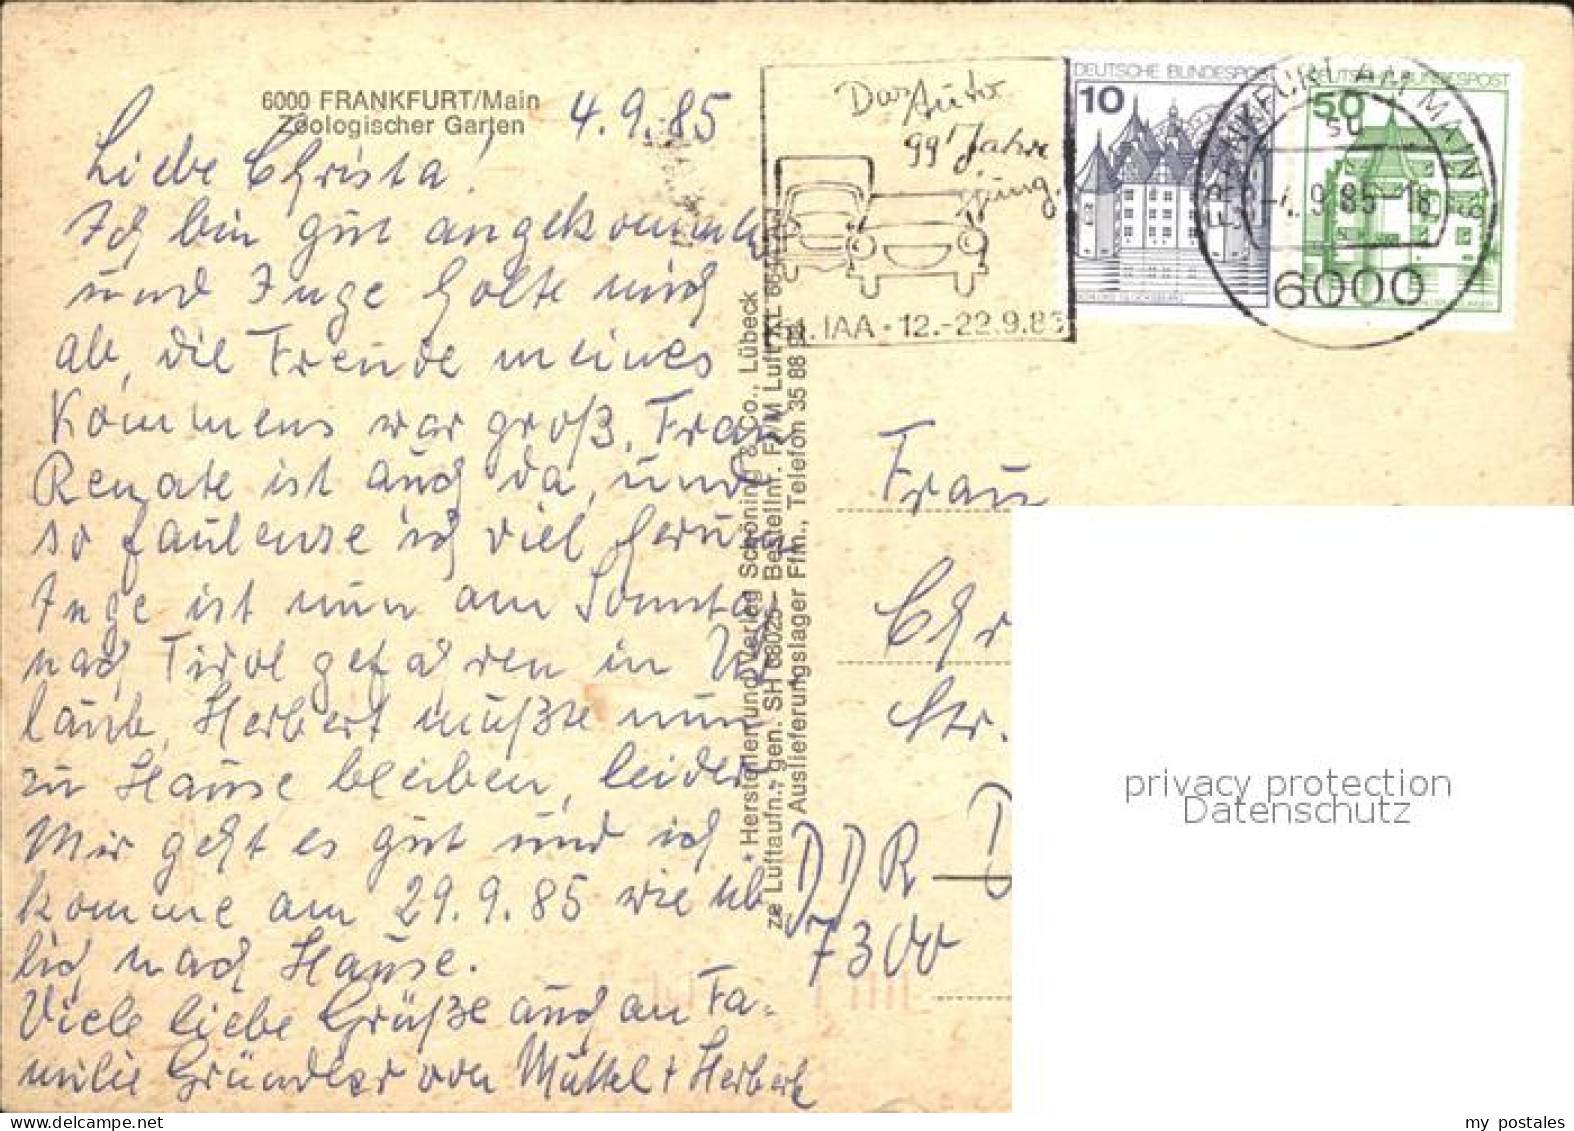 6000 FRANKFURT/Main
Zoologischer Garten
4.9.85
Liebe Christa!
Ich bin gut angekommen
und Inge holte mich
ab, die Freude meines
Kommens war groß, Frau
Renate ist auch da, und
so faulense ich viel herum
Inge ist nun am Sonntag
nach Tirol gefahren in Ur
laub, Herbert müßte nun
zu Hause bleiben, leider
Mir geht es gut und ich
komme am 29.9.85 wie üb
lich nach Hause.
Viele liebe Grüße auch an Fa-
milie Gründler von Muttel + Herbert
* Herstellen und Verlag Schöning & Co., Lübeck
ze Luftaufn.: gen. SH 68025 - Bestellnr. FF/M Luft XL
Auslieferungslager Ffm., Telefon 35 88
Das Auto
99 Jahre
jung.
IAA · 12.-22.9.85
DEUTSCHE BUNDESPOST
10
DEUTSCHE BUNDESPOST
50
FRANKFURT AM MAIN
-4.9.85-18
6000
Frau
Chr
Str.
DDR-
7300
privacy protection
Datenschutz
my postales